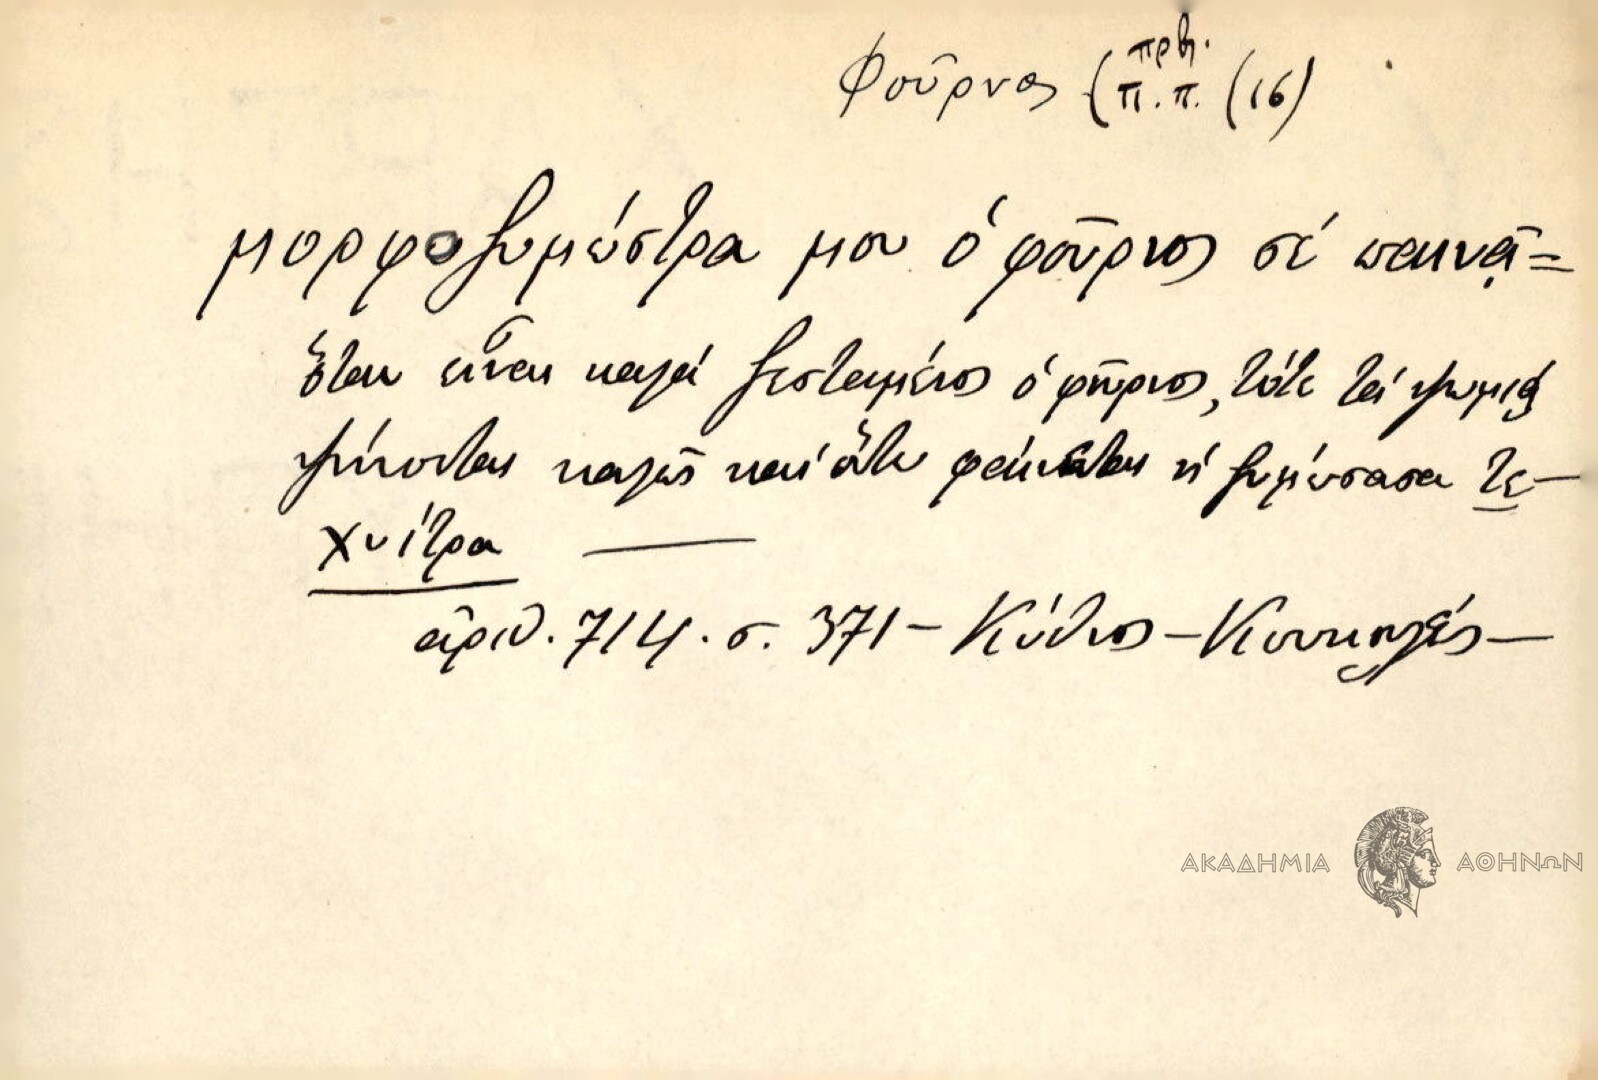 Φοῦρνος (πρβ.
Π.π. (16)
μορφοζυμώστρα μου ὁ φοῦρνος σέ παινᾷ=
ὅταν εἶναι καλά ζεσταμένος ὁ φοῦρνος, τότε τά ψωμιά
ψήνονται καλῶς καί ὅτι φαίνεται ἡ ζυμώσασα τε-
χνίτρα —
ἀριθ. 714. σ. 371 - Κύθνος - Κουκουλές -
ΑΚΑΔΗΜΙΑ ΑΘΗΝΩΝ